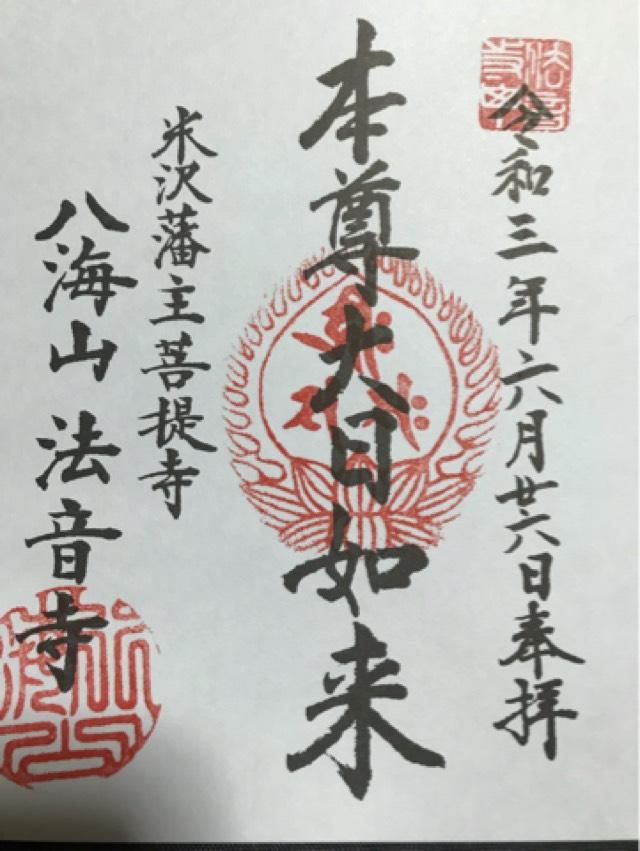 令和三年六月廿六日奉拝
本尊大日如来
米沢藩主菩提寺
八海山 法音寺